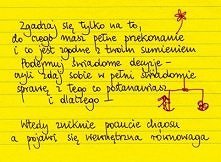 Zgadzaj się tylko na to,
do czego masz pełne przekonanie
i co jest zgodne z twoim sumieniem
Podejmuj świadome decyzje -
czyli zdaj sobie w pełni świadomie
sprawę z tego co postanawiasz
i dlaczego -
Wtedy zniknie poczucie chaosu
a pojawi się wewnętrzna równowaga